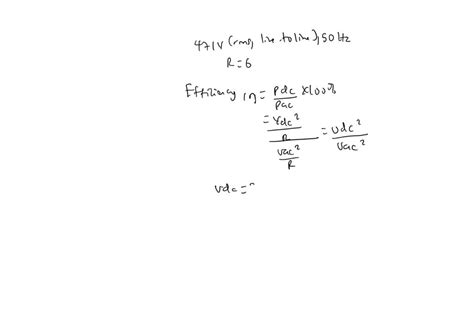 471V (rms, line to line), 50Hz
R=6
Efficiency, η = Pdc / Pac × 100%
= Vdc² / R / Vac² / R = Vdc² / Vac²
Vdc =